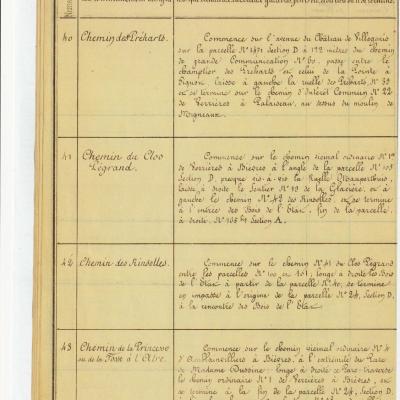 40 Chemin des Préharts.
Commence sur l'avenue du Château de Villegenis
sur la parcelle Nº 1471 Section D à 122 mètres du chemin
de grande Communication Nº 60, passe entre le
champtier des Préharts et celui de la Pointe à
Pigeon, laisse à gauche la ruelle des Préharts Nº 39
et se termine sur le chemin d'Intérêt Commun Nº 22
de Verrières à Palaiseau, au dessus du moulin de
Migneaux.
41 Chemin du Clos
Legrand.
Commence sur le chemin vicinal ordinaire Nº 1er
de Verrières à Bièvres à l'angle de la parcelle Nº 105
Section D, presque vis-à-vis la Ruelle Mauperthuis,
laisse à droite le Sentier Nº 19 de la Glacière, et à
gauche le chemin Nº 42 des Rinselles, et se termine
à l'entrée des Bois de l'Etat, fin de la parcelle,
à droite, Nº 105 bis Section A.
42 Chemin des Rinselles.
Commence sur le chemin Nº 41 du Clos Legrand
entre les parcelles Nº 100 et 101, longe à droite les Bois
de l'Etat à partir de la parcelle Nº 40, se termine
en impasse à l'origine de la parcelle Nº 24, Section D,
à la rencontre des Bois de l'Etat
43 Chemin de la Princesse
ou de la Fosse à l'Atre.
Commence sur le chemin vicinal ordinaire Nº 4
d'Amblainvilliers à Bièvres, à l'extrémité du Parc
de Madame Dussine; longe à droite ce Parc, traverse
le chemin ordinaire Nº 1 de Verrières à Bièvres, et
se termine à la fin de la parcelle Nº 24, Section D,